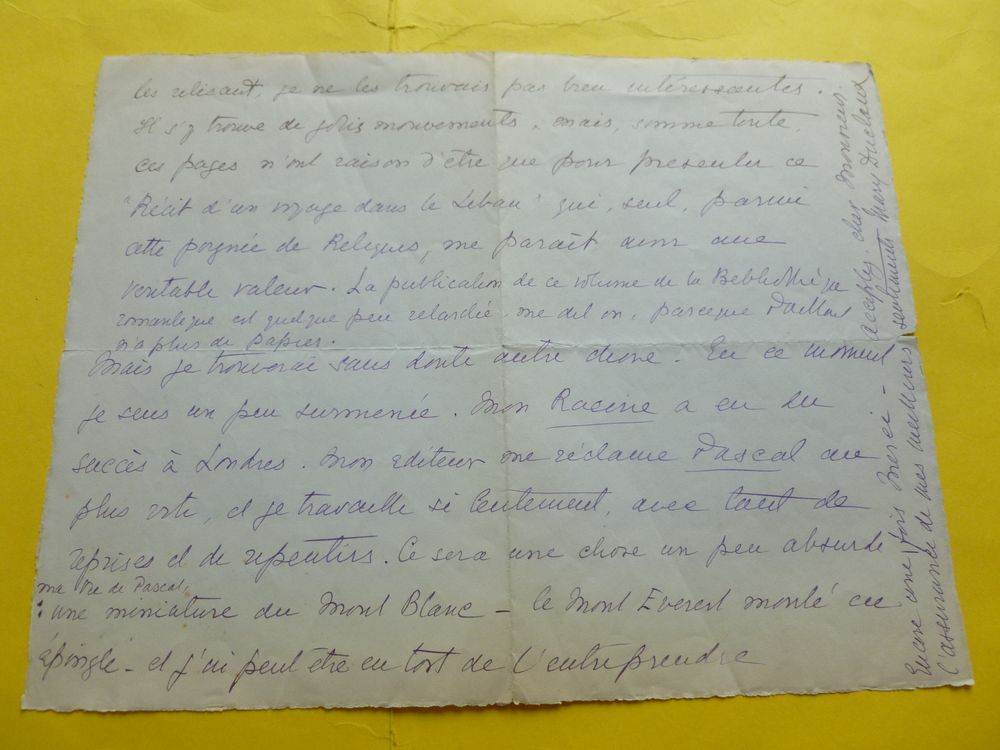 les relisant, je ne les trouvais pas bien intéressantes.
Il s'y trouve de jolis mouvements, mais, somme toute,
ces pages n'ont raison d'être que pour présenter ce
"Récit d'un voyage dans le Liban" qui, seul, parmi
cette poignée de Reliques, me paraît avoir une
véritable valeur. La publication de ce volume de la Bibliothèque
romantique est quelque peu retardée, me dit on, parceque
n'a plus de papier.
Mais je trouverai sans doute autre chose. En ce moment
je suis un peu surmenée. Mon Racine a eu du
succès à Londres. Mon editeur me réclame Pascal au
plus vite, et je travaille si lentement, avec tant de
reprises et de repentirs. Ce sera une chose un peu absurde
ma Vie de Pascal,
: une miniature du Mont Blanc — le Mont Everest monté en
épingle — et j'ai peut être eu tort de l'entreprendre
Encore une fois merci — acceptez cher Monsieur.
l'assurance de mes meilleurs sentiments Mary Duclaux